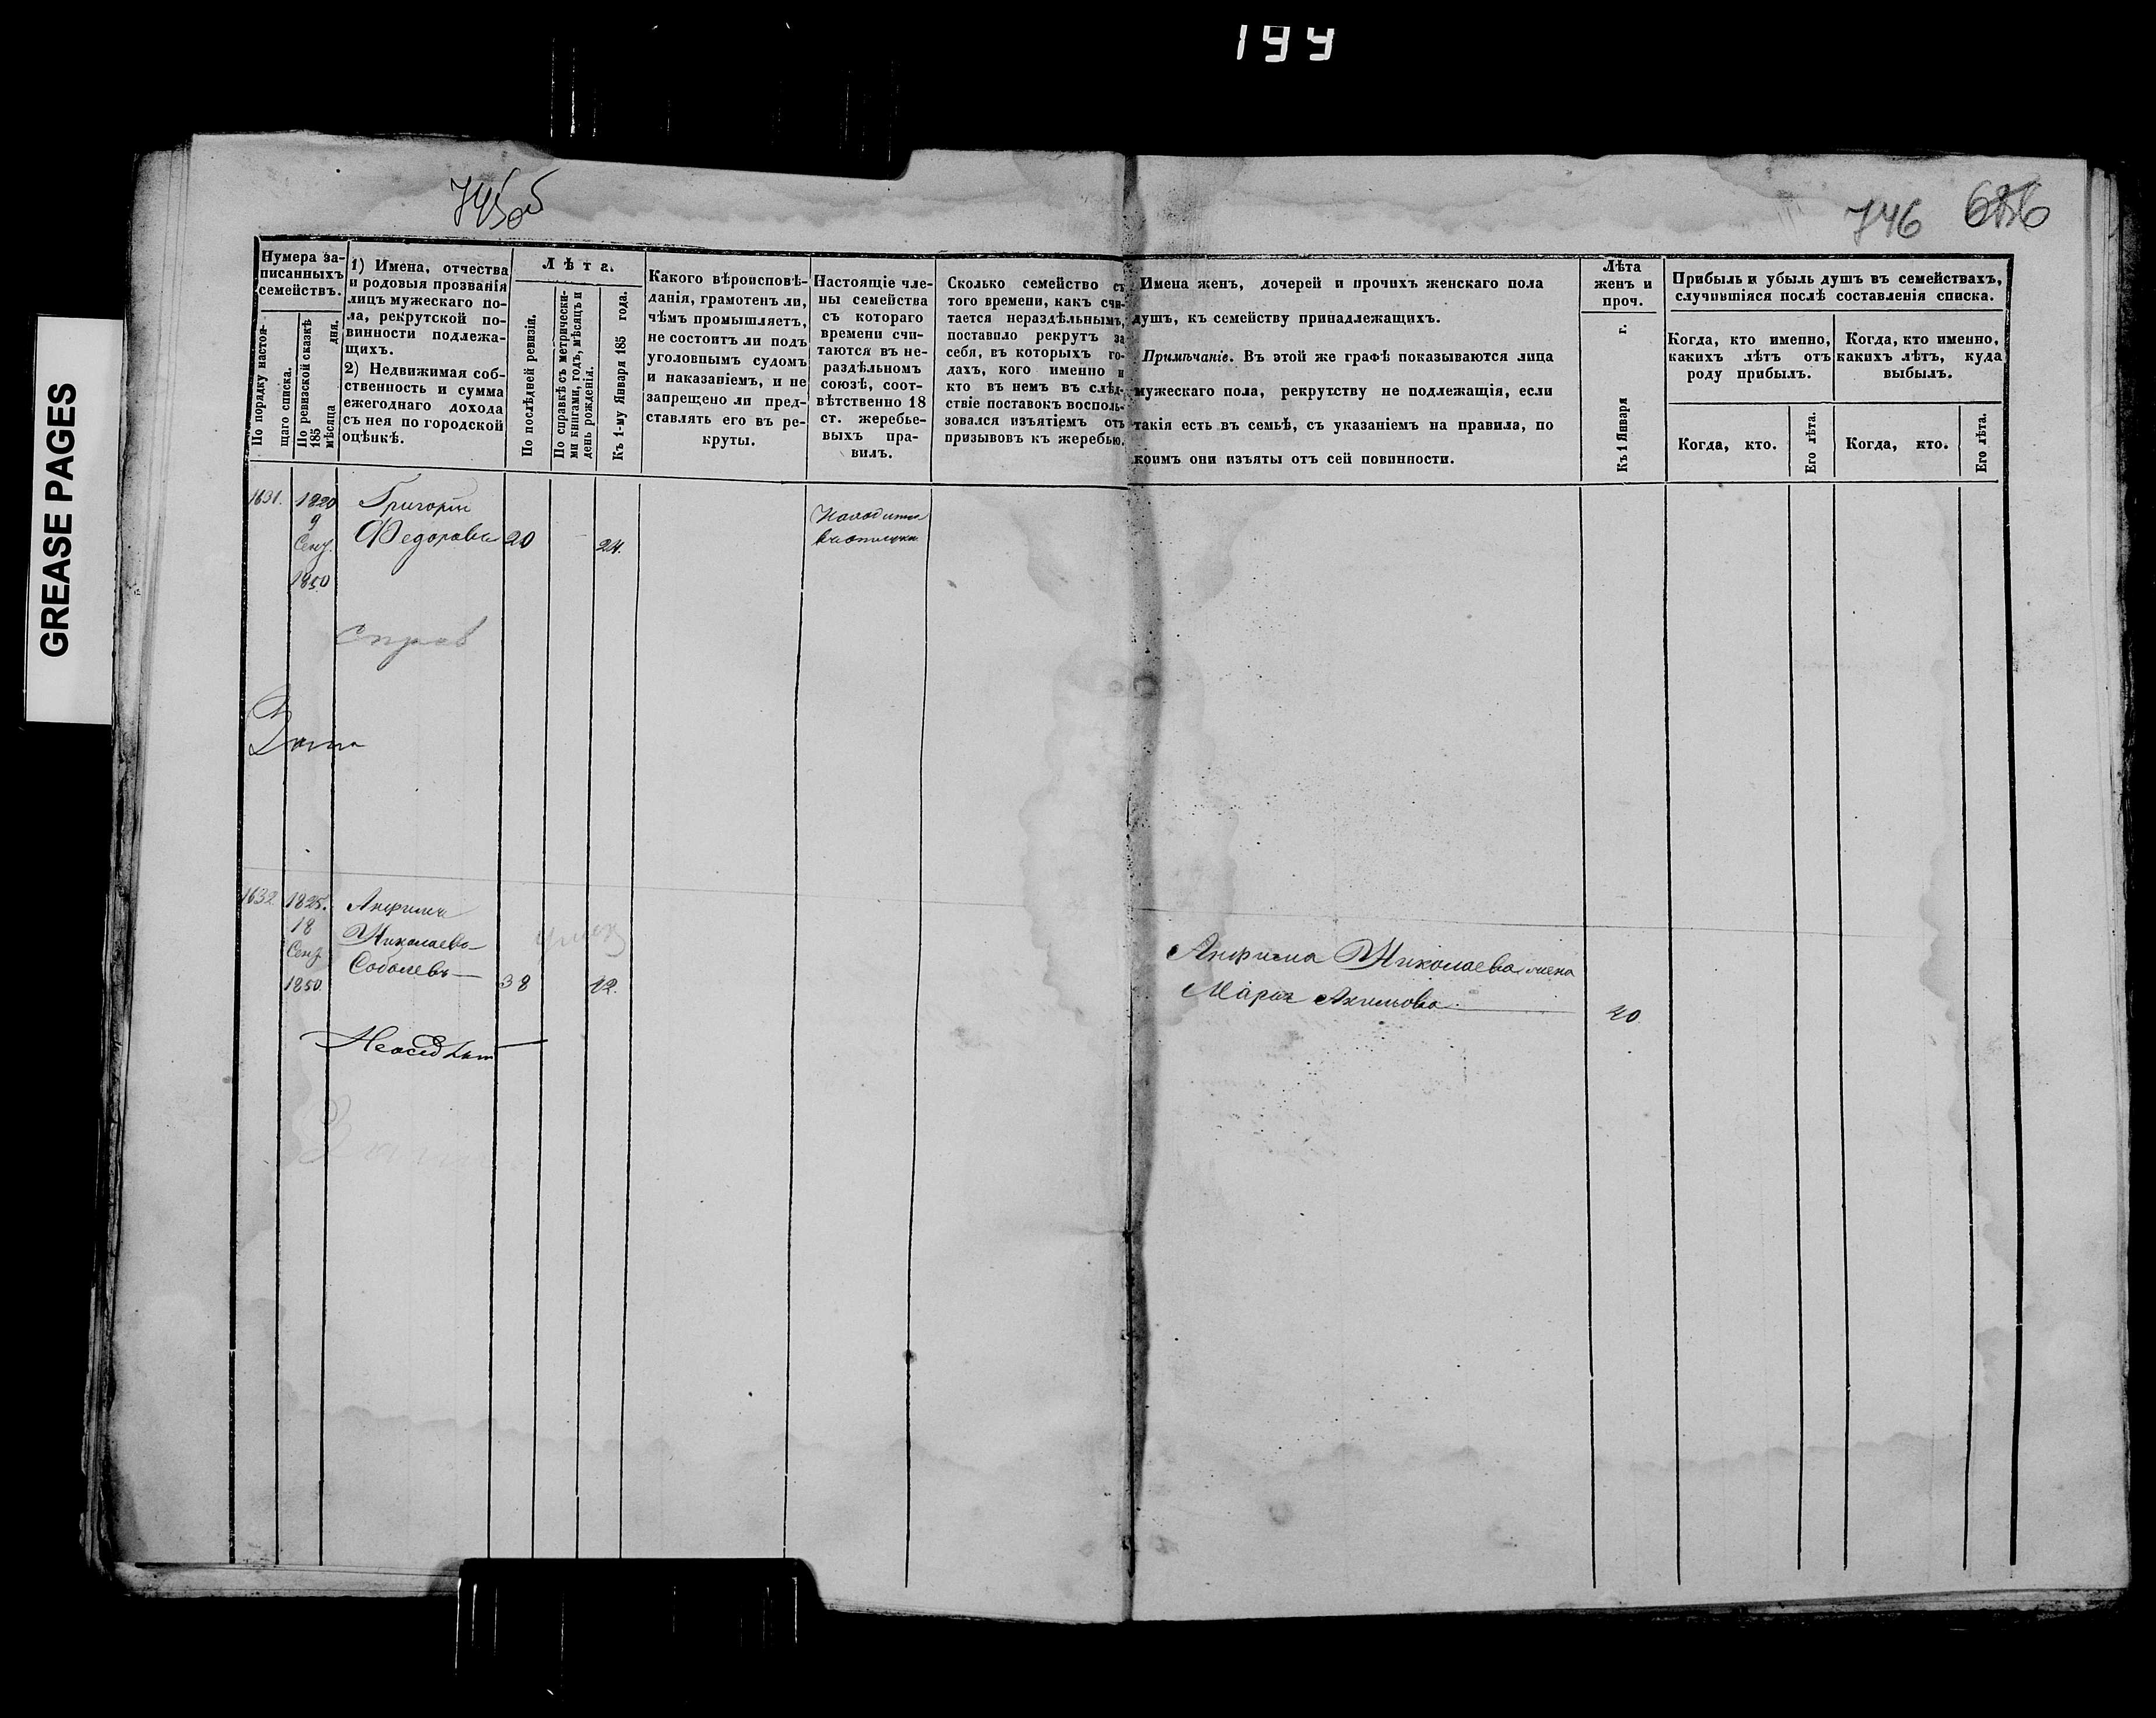 199
GREASE PAGES
745об
746
Нумера за-
писанныхъ
семействъ.
По порядку настоя-
щаго списка.
По ревизской сказкѣ
185 дня.
мѣсяца
1) Имена, отчества
и родовыя прозванія
лицъ мужескаго по-
ла, рекрутской по-
винности подлежа-
щихъ.
2) Недвижимая соб-
ственность и сумма
ежегоднаго дохода
съ нея по городской
оцѣнкѣ.
Лѣта.
По послѣдней ревизіи.
По справкѣ съ метрически-
ми книгами, годъ, мѣсяцъ и
день рожденія.
Къ 1-му Января 185 года.
Какого вѣроисповѣ-
данія, грамотенъ ли,
чѣмъ промышляетъ,
не состоитъ ли подъ
уголовнымъ судомъ
и наказаніемъ, и не
запрещено ли пред-
ставлять его въ ре-
круты.
Настоящіе чле-
ны семейства
съ котораго
времени счи-
таются въ не-
раздѣльномъ
союзѣ, соот-
вѣтственно 18
ст. жеребье-
выхъ пра-
вилъ.
Сколько семейство съ
того времени, какъ счи-
тается нераздѣльнымъ,
поставило рекрутъ за
себя, въ которыхъ го-
дахъ, кого именно и
кто въ немъ въ слѣд-
ствіе поставокъ восполь-
зовался изъятіемъ отъ
призывовъ къ жеребью.
Имена женъ, дочерей и прочихъ женскаго пола
душъ, къ семейству принадлежащихъ.
Примѣчаніе. Въ этой же графѣ показываются лица
мужескаго пола, рекрутству не подлежащія, если
такія есть въ семьѣ, съ указаніемъ на правила, по
коимъ они изъяты отъ сей повинности.
Лѣта
женъ и
проч.
Къ 1 Января г.
Прибыль и убыль душъ въ семействахъ,
случившіяся послѣ составленія списка.
Когда, кто именно,
какихъ лѣтъ отъ
роду прибылъ.
Когда, кто именно,
какихъ лѣтъ, куда
выбылъ.
Когда, кто.
Его лѣта.
Когда, кто.
Его лѣта.
1631. 1820 Григорій
9 Федоровъ 20 24.
Сент.
1850
справ
1632 1825. Анфимъ
18 Николаевъ
Сент. Соболевъ
1850. 38 42.
Анфима Николаева жена
Марья Акимова 20